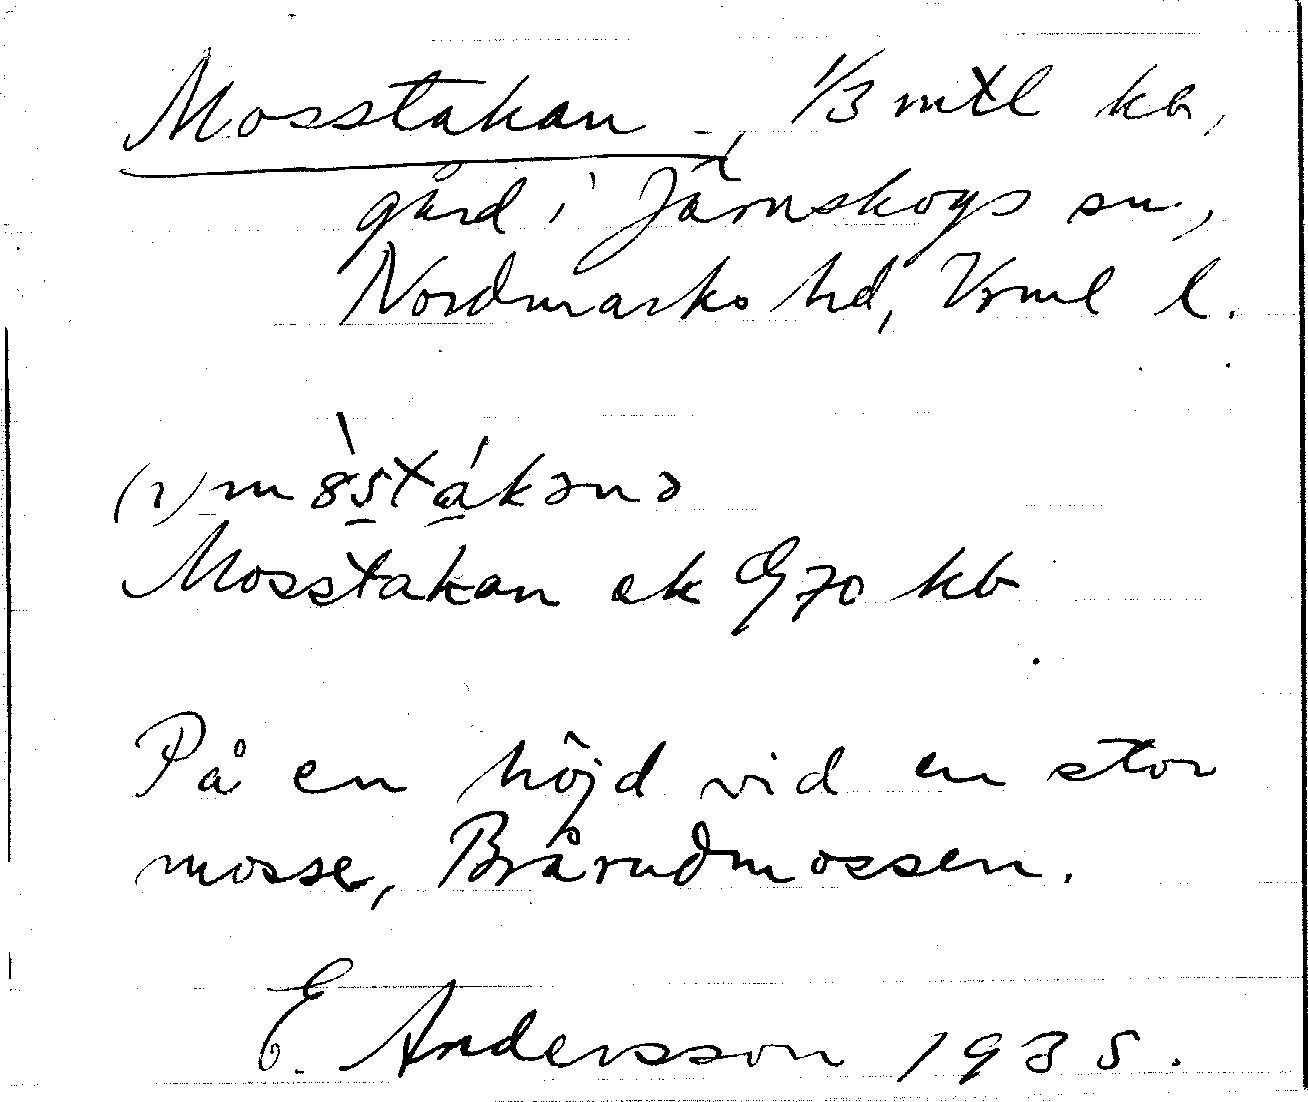 Mosstakan, 1/3 mtl kb,
gård i Järnskogs sn,
Nordmarks hd, Vrml l.
(1) m
Mosstakan ek G70 kb
På en höjd vid en stor
mosse, Brårudmossen.
E. Andersson 1935.